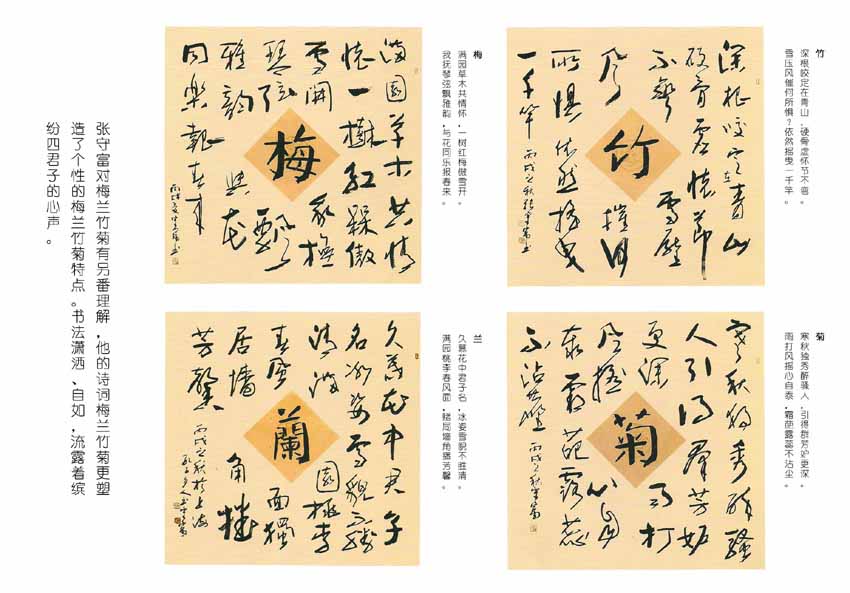 竹
深根咬定在青山，硬骨虚怀节不弯。
雪压风催何所惧？依然摇曳一千竿。
深根咬定在青山
硬骨虚怀節
不弯雪壓
风摧何
竹
所惧依然摇曳
一千竿 丙戌之秋张守富书
菊
寒秋独秀醉骚人，引得群芳妒更深。
雨打风摇心自泰，霜葩露蕊不沾尘。
寒秋独秀醉骚
人引得群芳妒
更深雨打
风摇心自
菊
泰霜葩露蕊
不沾尘 丙戌之秋守富
梅
满园草木共情怀，一树红梅傲雪开。
我抚琴弦飘雅韵，与花同乐报春来。
满園草木共情
怀一樹红梅傲
雪開我撫
琴弦飘
梅
雅韵與花
同樂報春来
兰
久慕花中君子名，冰姿雪貌不胜清。
满园桃李春风面，独居墙角播芳馨。
久慕花中君子
名冰姿雪貌不勝
清满園桃李
春風面獨
蘭
居墙角播
芳馨 丙戌之秋於上海
张守富对梅兰竹菊有另番理解，他的诗词梅兰竹菊更塑
造了个性的梅兰竹菊特点。书法潇洒、自如，流露着缤
纷四君子的心声。